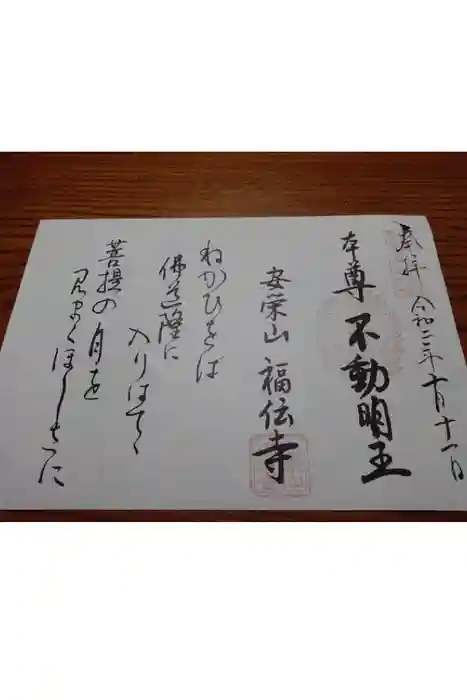 奉拝 令和二年十月十一日
本尊 不動明王
安栄山 福伝寺
ねがひをば
佛道隆に
入りはてゝ
菩提の月を
見まくほしさに